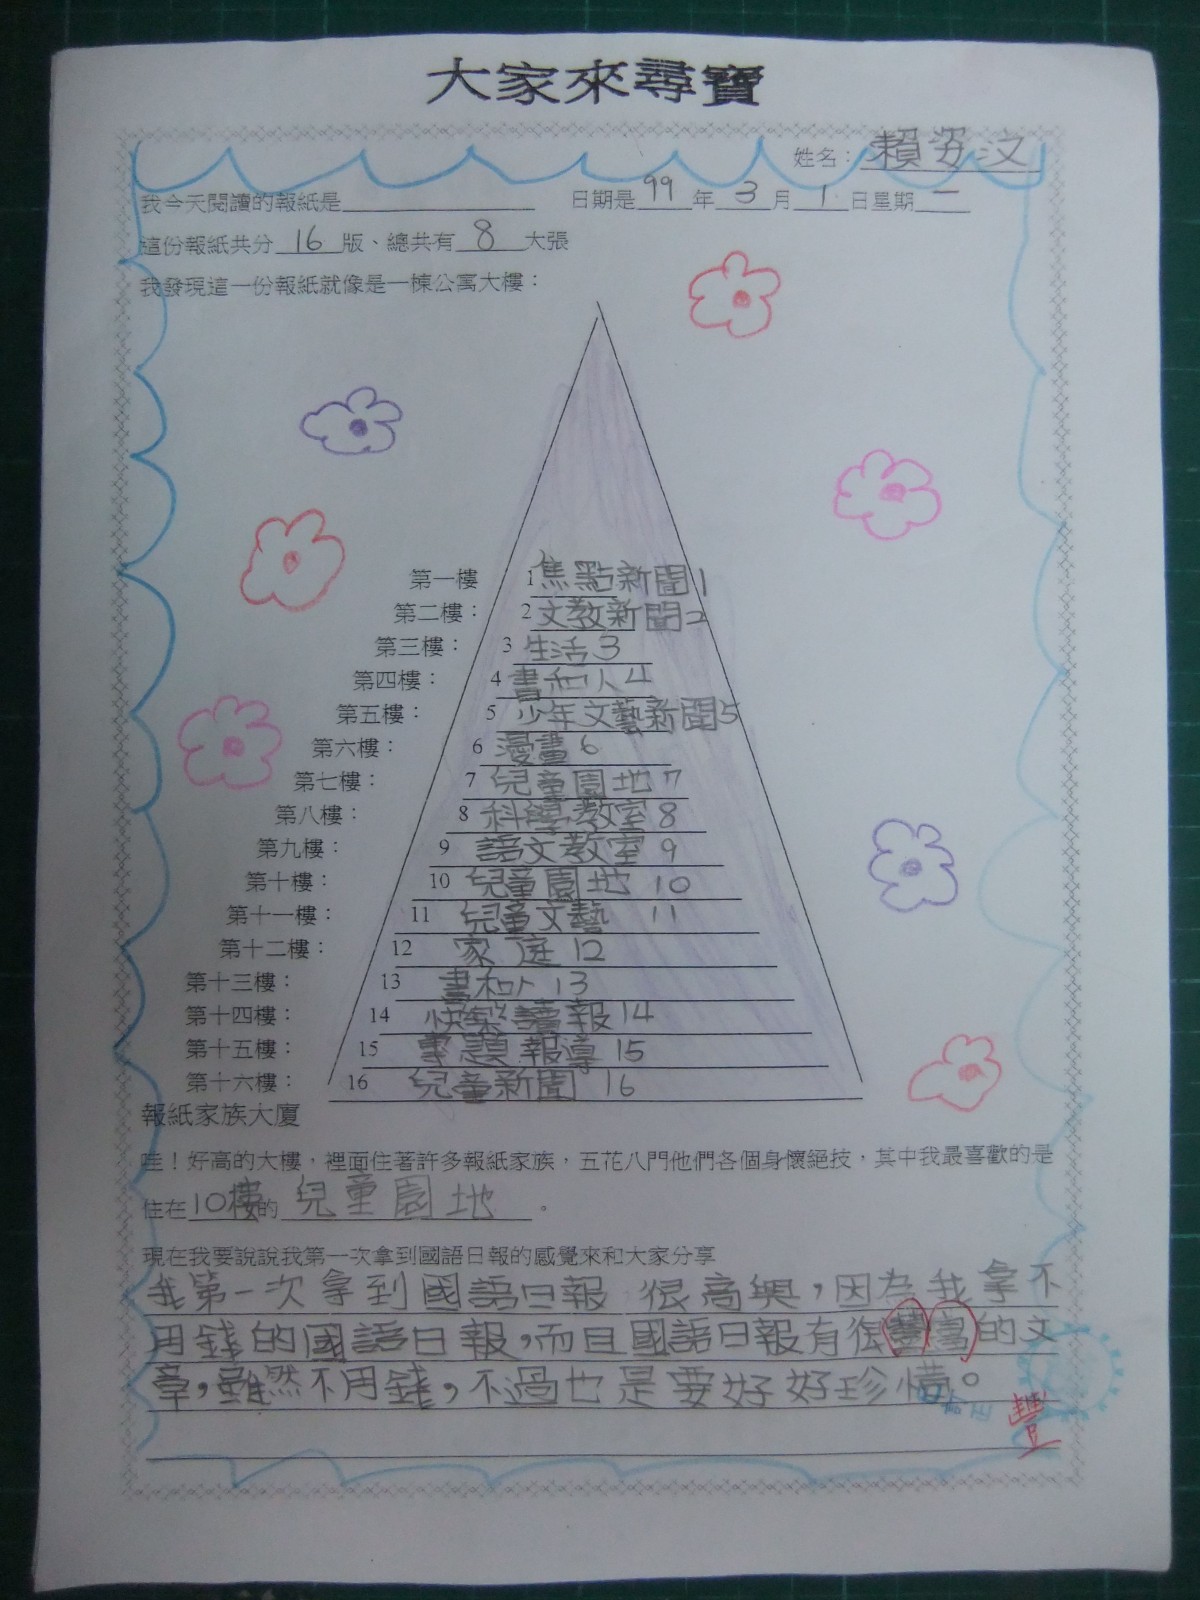 大家來尋寶
姓名：賴姿汶
我今天閱讀的報紙是 日期是99年3月1日星期二
這份報紙共分16版、總共有8大張
我發現這一份報紙就像是一棟公寓大樓：
第一樓 1焦點新聞1
第二樓： 2文教新聞2
第三樓： 3生活3
第四樓： 4書和人4
第五樓： 5少年文藝新聞5
第六樓： 6漫畫6
第七樓： 7兒童園地7
第八樓： 8科學教室8
第九樓： 9語文教室9
第十樓： 10兒童園地10
第十一樓： 11兒童文藝11
第十二樓： 12家庭12
第十三樓： 13書和人13
第十四樓： 14快樂讀報14
第十五樓： 15專題報導15
第十六樓： 16兒童新聞16
報紙家族大廈
哇！好高的大樓，裡面住著許多報紙家族，五花八門他們各個身懷絕技，其中我最喜歡的是
住在10樓的兒童園地。
現在我要說說我第一次拿到國語日報的感覺來和大家分享
我第一次拿到國語日報 很高興，因為我拿不
用錢的國語日報，而且國語日報有很豐富的文
章，雖然不用錢，不過也是要好好珍惜。
豐